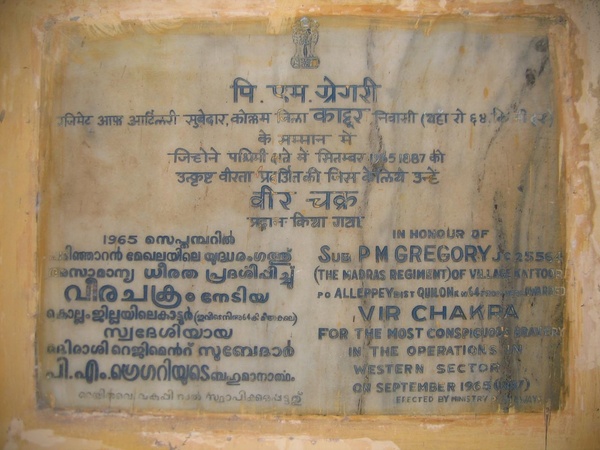 पि. एम. ग्रेगरी
रेजिमेंट आफ आर्टिलरी सुबेदार, कोल्लम जिला काट्टूर निवासी (यहा से ६४
के सम्मान में
जिन्होंने पश्चिमी क्षेत्र में सितम्बर 1965 1887 को
उत्कृष्ट वीरता प्रदर्शित की जिस के लिये उन्हें
वीर चक्र
प्रदान किया गया
1965 സെപ്തംബറിൽ
പടിഞ്ഞാറൻ മേഖലയിലെ യുദ്ധരംഗത്ത്
അസാമാന്യ ധീരത പ്രദർശിപ്പിച്ച്
വീരചക്രം നേടിയ
കൊല്ലം ജില്ലയിലെ കാട്ടൂർ
സ്വദേശിയായ
മദിരാശി റെജിമെൻറ് സുബേദാർ
പി.എം.ഗ്രെഗറിയുടെ ബഹുമാനാർത്ഥം
റെയിൽവെ വകുപ്പിനാൽ സ്ഥാപിക്കപ്പെട്ടത്
IN HONOUR OF
SUB P M GREGORY JC 2556
(THE MADRAS REGIMENT) OF VILLAGE KATTOOR
PO ALLEPPEY DIST QUILON
VIR CHAKRA
FOR THE MOST CONSPICUOUS BRAVERY
IN THE OPERATIONS IN
WESTERN SECTOR
ON SEPTEMBER 1965 (1887)
ERECTED BY MINISTRY OF RAILWAYS